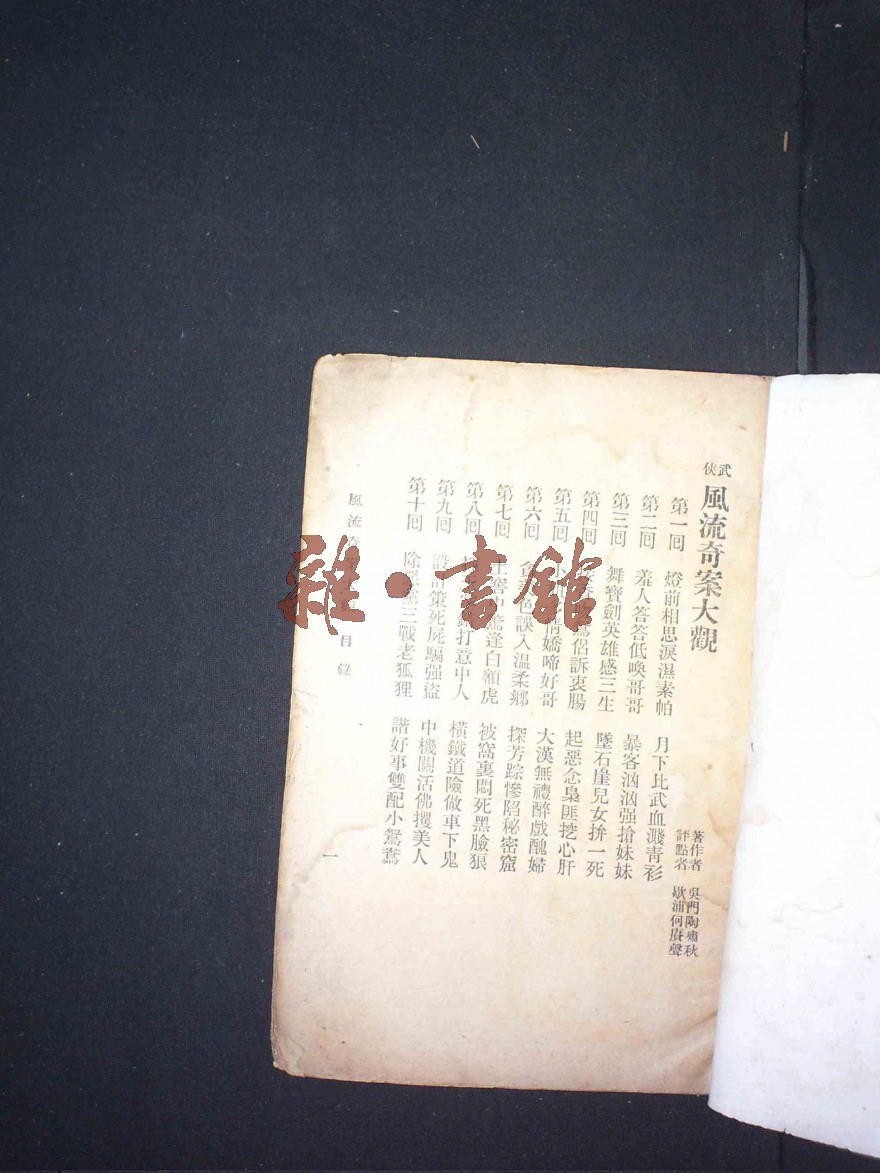 武俠 風流奇案大觀
著作者 吳門陶嘯秋
評點者 歇浦何賡聲
第一囘 燈前相思淚濕素帕 月下比武血濺青衫
第二囘 羞人答答低喚哥哥 暴客汹汹强搶妹妹
第三囘 舞寶劍英雄感三生 墜石崖兒女拚一死
第四囘 侶訴衷腸 起惡念梟匪挖心肝
第五囘 情嬌啼好哥 大漢無禮醉戲醜婦
第六囘 貪 色誤入温柔鄉 探芳踪慘陷秘密窟
第七囘 土窖 驚逢白額虎 被窩裏悶死黑臉狼
第八囘 打意中人 橫鐵道險做車下鬼
第九囘 設 策死屍騙强盜 中機關活佛攫美人
第十囘 除 三戰老狐狸 諧好事雙配小鴛鴦
風流奇 目錄
一
雜·書館